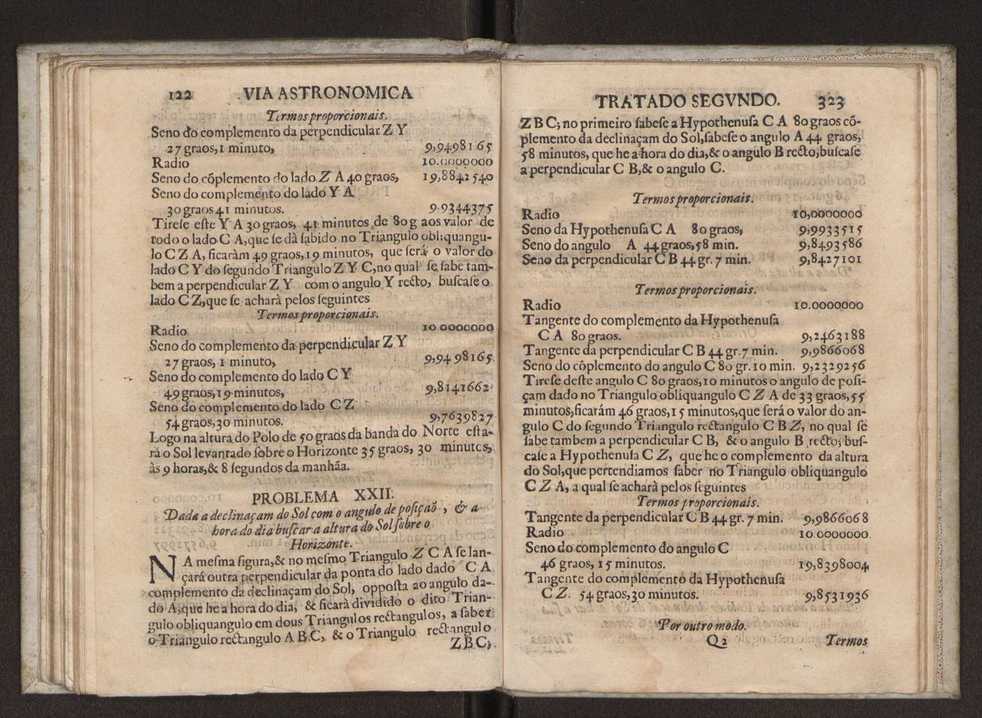 122 VIA ASTRONOMICA
Termos proporcionais.
Seno do complemento da perpendicular Z Y
27 graos, 1 minuto, 9,9498165
Radio 10.0000000
Seno do cōplemento do lado Z A 40 graos, 19,8842540
Seno do complemento do lado Y A
30 graos 41 minutos. 9.9344375
Tirese este Y A 30 graos, 41 minutos de 80 g aos valor de
todo o lado C A, que se dà sabido no Triangulo obliquangu-
lo C Z A, ficaràm 49 graos, 19 minutos, que serà o valor do
lado C Y do segundo Triangulo Z Y C, no qual se sabe tam-
bem a perpendicular Z Y com o angulo Y recto, buscase o
lado C Z, que se acharà pelos seguintes
Termos proporcionais.
Radio 10 0000000
Seno do complemento da perpendicular Z Y
27 graos, 1 minuto, 9,9498165
Seno do complemento do lado C Y
49 graos, 19 minutos, 9,8141662
Seno do complemento do lado C Z
54 graos, 30 minutos. 9,7639827
Logo na altura do Polo de 50 graos da banda do Norte esta-
rà o Sol levantado sobre o Horizonte 35 graos, 30 minutos,
às 9 horas, & 8 segundos da manhãa.
PROBLEMA XXII.
Dada a declinaçam do Sol com o angulo de posiçaõ, & a
hora do dia buscar a altura do Sol sobre o
Horizonte.
NA mesma figura, & no mesmo Triangulo Z C A se lan-
çarà outra perpendicular da ponta do lado dado C A
complemento da declinaçam do Sol, opposta ao angulo da-
do A, que he a hora do dia, & ficarà dividido o dito Trian-
gulo obliquangulo em dous Triangulos rectangulos, a saber
o Triangulo rectangulo A B C, & o Triangulo rectangulo
Z B C;
TRATADO SEGVNDO. 323
Z B C; no primeiro sabese a Hypothenusa C A 80 graos cō-
plemento da declinaçam do Sol, sabese o angulo A 44 graos,
58 minutos, que he a hora do dia, & o angulo B recto, buscase
a perpendicular C B, & o angulo C.
Termos proporcionais.
Radio 10,0000000
Seno da Hypothenusa C A 80 graos, 9,9933515
Seno do angulo A 44 graos, 58 min. 9,8493586
Seno da perpendicular C B 44 gr. 7 min. 9,8427101
Termos proporcionais.
Radio 10.0000000
Tangente do complemento da Hypothenusa
C A 80 graos. 9,2463188
Tangente da perpendicular C B 44 gr. 7 min. 9,9866068
Seno do cōplemento do angulo C 80 gr. 10 min. 9,2329256
Tirese deste angulo C 80 graos, 10 minutos o angulo de posi-
çam dado no Triangulo obliquangulo C Z A de 33 graos, 55
minutos, ficaràm 46 graos, 15 minutos, que serà o valor do an-
gulo C do segundo Triangulo rectangulo C B Z, no qual se
sabe tambem a perpendicular C B, & o angulo B recto; bus-
case a Hypothenusa C Z, que he o complemento da altura
do Sol, que pertendiamos saber no Triangulo obliquangulo
C Z A, a qual se acharà pelos seguintes
Termos proporcionais.
Tangente da perpendicular C B 44 gr. 7 min. 9,9866068
Radio 10 0000000
Seno do complemento do angulo C
46 graos, 15 minutos. 19,8398004
Tangente do complemento da Hypothenusa
C Z. 54 graos, 30 minutos. 9,8531936
Por outro modo.
Q2 Termos